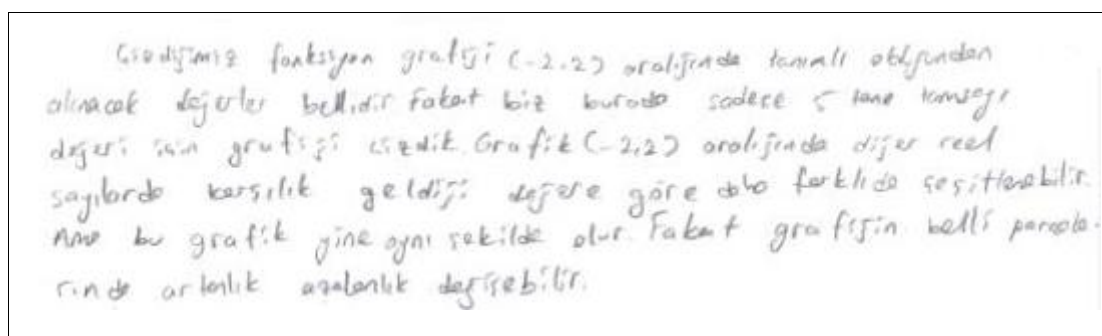 Çizdiğimiz fonksiyon grafiği (-2,2) aralığında tanımlı olduğundan
alınacak değerler bellidir. Fakat biz burada sadece 5 tane tamsayı
değeri için grafiği çizdik. Grafik (-2,2) aralığında diğer reel
sayılarda karşılık geldiği değere göre daha farklıda çeşitlenebilir.
Ama bu grafik yine aynı şekilde olur. Fakat grafiğin belli parçala-
rında artanlık azalanlık değişebilir.